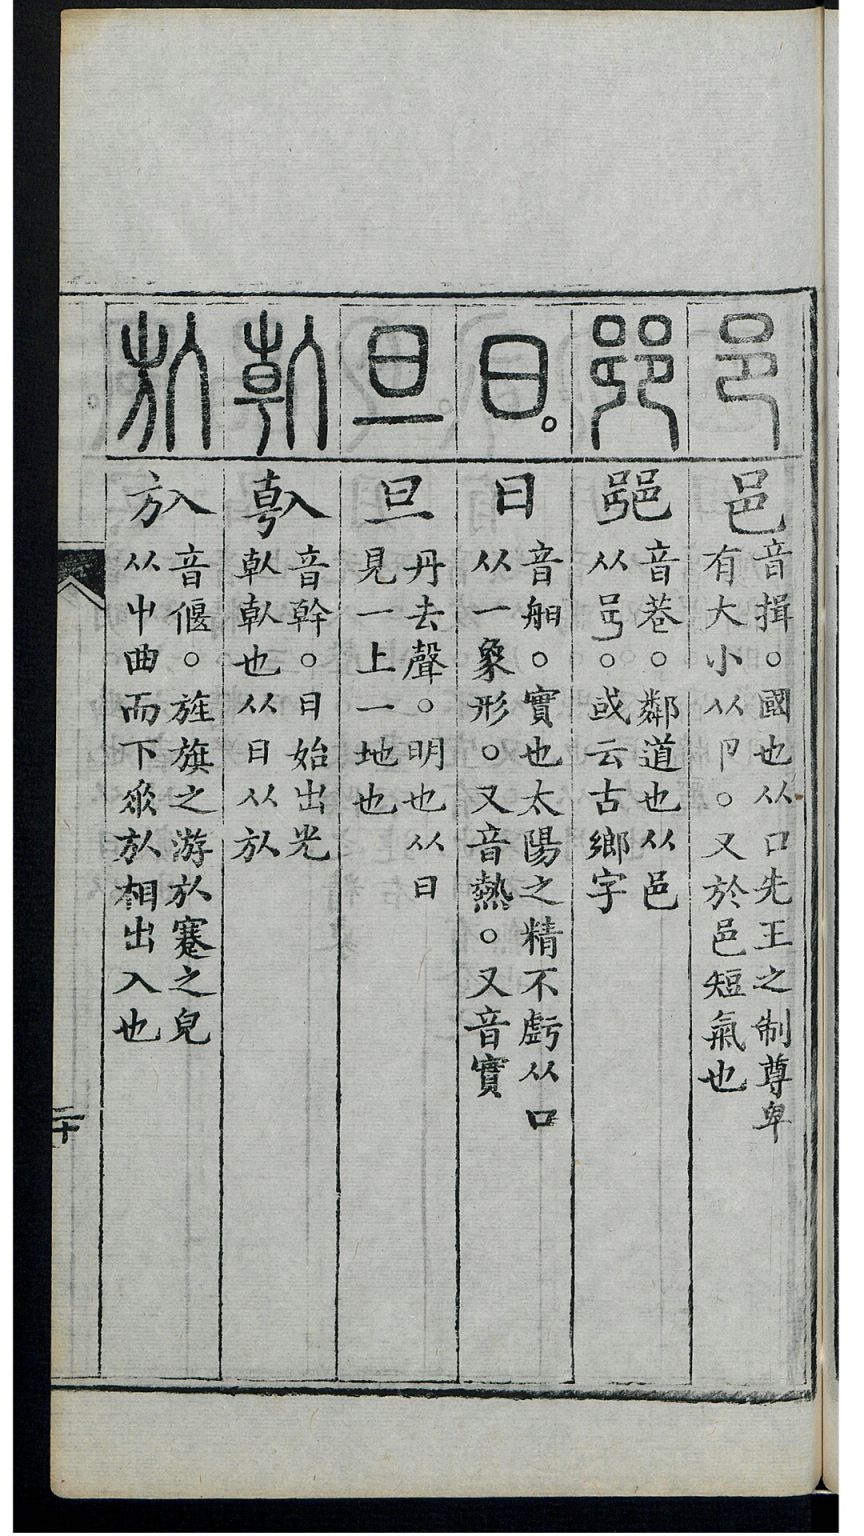 邑
音揖。國也从口先王之制尊卑
有大小从卪。又於邑短氣也
𨛜
音巷。鄰道也从邑
从𠨍。或云古鄉字
日
實也太陽之精不虧从口
从一象形。又音熱。又音實
旦
丹去聲。明也从日
見一上一地也
倝
音幹。日始出光
倝倝也从日从㫃
㫃
音偃。旌旗之游㫃蹇之皃
从屮曲而下垂㫃相出入也
二十